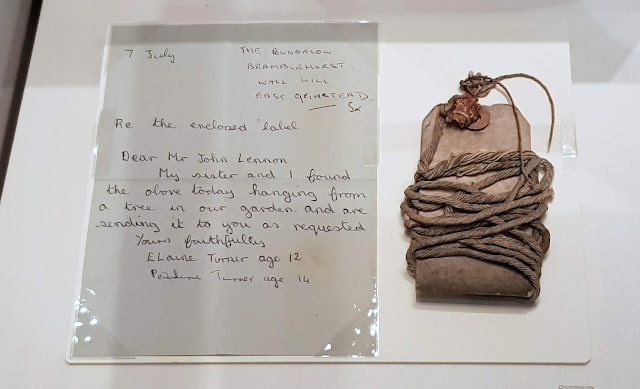 7 July
THE BUNGALOW
BRAMBLEHURST.
WALL HILL
EAST GRINSTEAD.
Sx
Re the enclosed label
Dear Mr John Lennon
My sister and I found
the above today hanging from
a tree in our garden. and are
sending it to you as requested
Yours faithfully
Elaine Turner age 12
Pauline Turner age 14